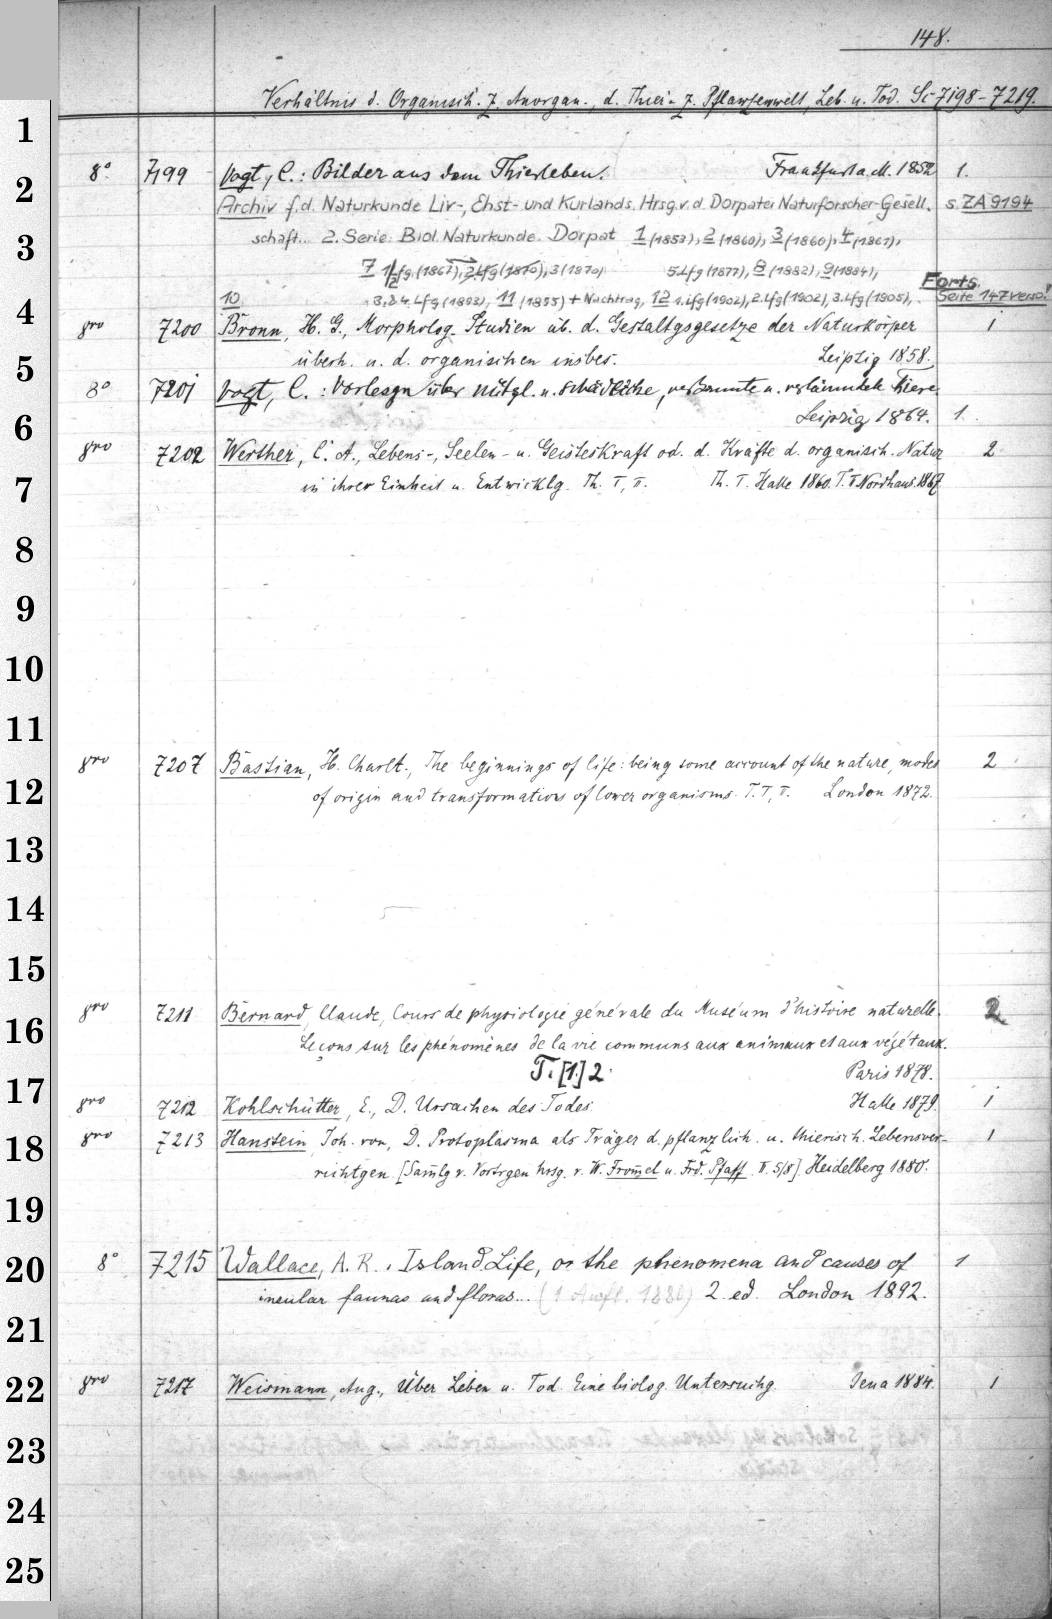 148.
Verhältnis d. Organisch. z. Anorgan., d. Thier- z. Pflanzenwelt, Leb. u. Tod. Sc 7198-7219.
1
8° 7199 Vogt, C.: Bilder aus dem Thierleben. Frankfurt a. M. 1852 1.
2
Archiv f. d. Naturkunde Liv-, Ehst- und Kurlands. Hrsg. v. d. Dorpater Naturforscher-Gesell. s. ZA 9194
3
schaft... 2. Serie: Biol. Naturkunde. Dorpat 1 (1853), 2 (1860), 3 (1860), 4 (1861),
7 1/2 lfg. (1867), 2. Lfg (1870), 3 (1870) 5. Lfg (1877), 8 (1882), 9 (1884), Forts.
10 3. & 4. Lfg (1893), 11 (1895) + Nachtrag, 12 1. Lfg (1902), 2. Lfg (1902), 3. Lfg (1905), Seite 147 verso!
4
gro 7200 Bronn, H. G., Morpholog. Studien üb. d. Gestaltgsgesetze der Naturkörper 1
überh. u. d. organischen insbes. Leipzig 1858.
5
8° 7201 Vogt, C.: Vorlesgn über nützl. u. schädliche, verkannte u. verläumdete Thiere
Leipzig 1864. 1.
6
gro 7202 Werther, C. A., Lebens-, Seelen- u. Geisteskraft od. d. Kräfte d. organisch. Natur 2
7
in ihrer Einheit u. Entwicklg. Th. I, II. Th. I. Halle 1860. T. II Nordhaus. 1867
8
9
10
11
gro 7207 Bastian, H. Charlt., The beginnings of life: being some account of the nature, modes 2
12
of origin and transformations of lower organisms. T. I, II. London 1872.
13
14
15
gro 7211 Bernard, Claude, Cours de physiologie générale du Muséum d'histoire naturelle. 2
16
Leçons sur les phénomènes de la vie communs aux animaux et aux végétaux.
T. [1.] 2. Paris 1878.
17
gro 7212 Kohlschütter, E., D. Ursachen des Todes. Halle 1879. 1
18
gro 7213 Hanstein, Joh. von, D. Protoplasma als Träger d. pflanzlich. u. thierisch. Lebensver- 1
richtgen. [Sam̄lg v. Vortrgen hrsg. v. W. From̄el u. Frd. Pfaff. II. 5/8]. Heidelberg 1880.
19
20
8° 7215 Wallace, A. R.. Island Life, or the phenomena and causes of 1
insular faunas and floras... (1 Aufl. 1880) 2. ed. London 1892.
21
22
gro 7217 Weismann, Aug., Über Leben u. Tod. Eine biolog. Untersuchg. Jena 1884. 1
23
24
25